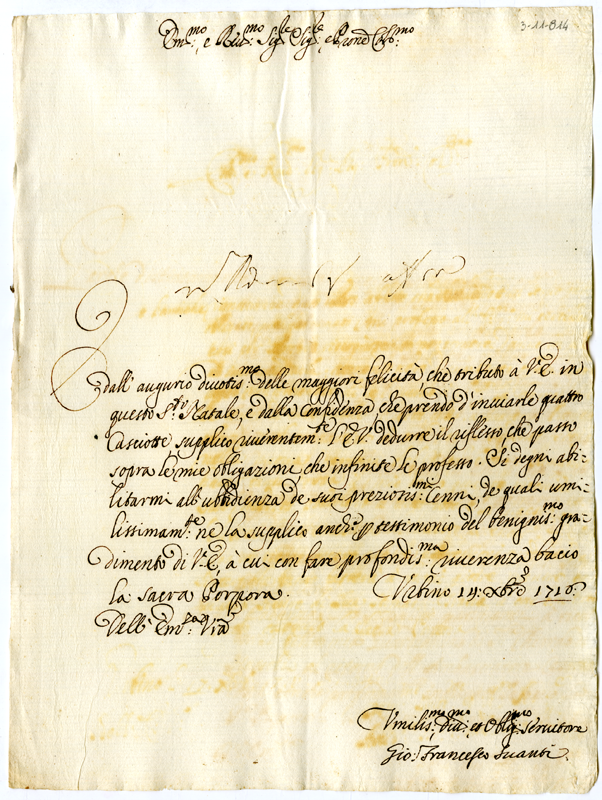 3-11-814
Em.mo, e Rev.mo Sig.re Sig.re, e Prone Col.mo
Dall' augurio divotis.mo delle maggiori felicità, che tributo à V.E. in
questo S.to Natale, e dalla Confidenza che prendo d'inviarle quattro
Casciotte supplico riverentem.te l'E.V. dedurre il riflesso che passo
sopra le mie obligazioni che infinite le professo. Si degni abi=
litarmi all' ubbidienza de suoi prezionis.mi Cenni, de quali umi=
lissimam.te ne la supplico anche p testimonio del benignis.mo gra=
dimento di V.E., à cui con fare profondis.ma riverenza bacio
la sacra Porpora. Urbino 14: Xbre 1716:
Dell' Em.za V.ra
Umilis.mo, div.mo, et Oblig.mo Servitore
Gio: Francesco